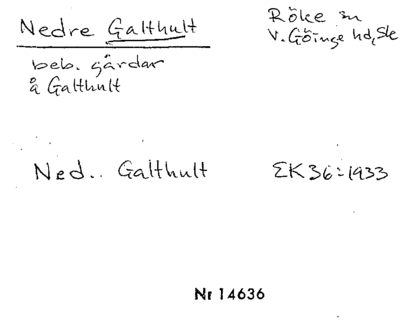 Nedre Galthult
Röke sn
V. Göinge hd, Sk
beb. gårdar
å Galthult
Ned.. Galthult
EK 36:1933
Nr 14636